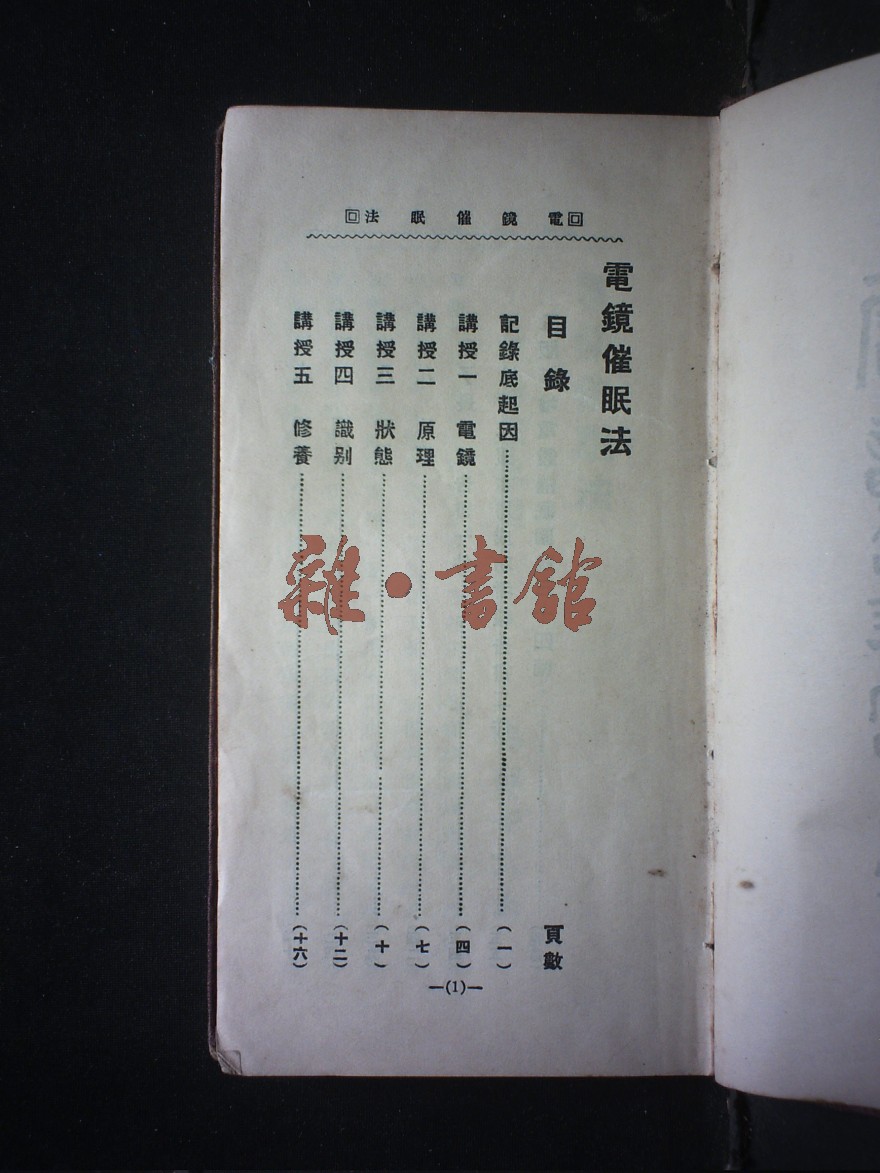 回電鏡催眠法回
電鏡催眠法
目錄 頁數
記錄底起因……(一)
講授一 電鏡……(四)
講授二 原理……(七)
講授三 狀態……(十)
講授四 識別……(十二)
講授五 修養……(十六)
—(1)—
雜·書館